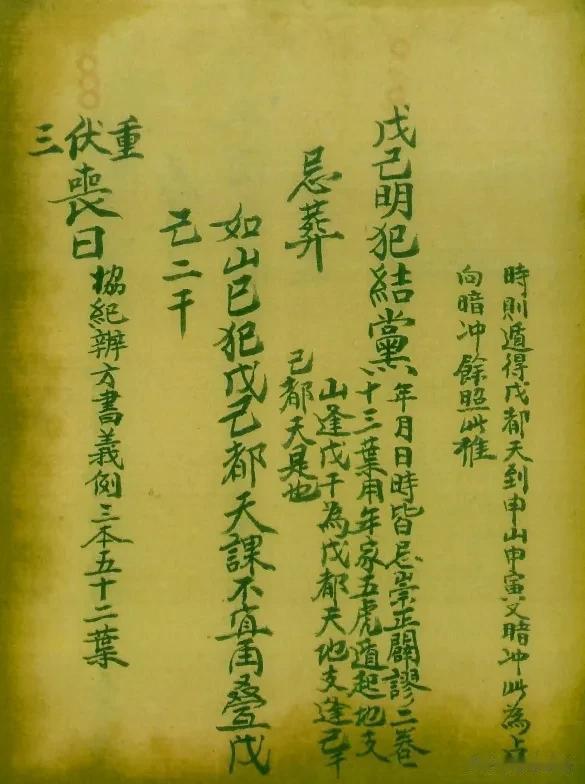 時則遁得戊都天到申山申寅又暗冲此為占
向暗冲餘照此推
戊己明犯結黨
年月日時皆忌崇正闢謬三卷
八十三葉用年家五虎遁起地支
山逢戊干為戊都天地支逢己干
己都天是也
忌葬
如山已犯戊己都天課不宜再叠戊
己二干
重伏三喪日
協紀辨方書義例三本五十二葉